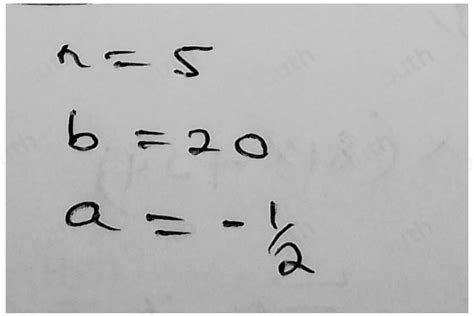 n = 5
b = 20
a = - 1/2